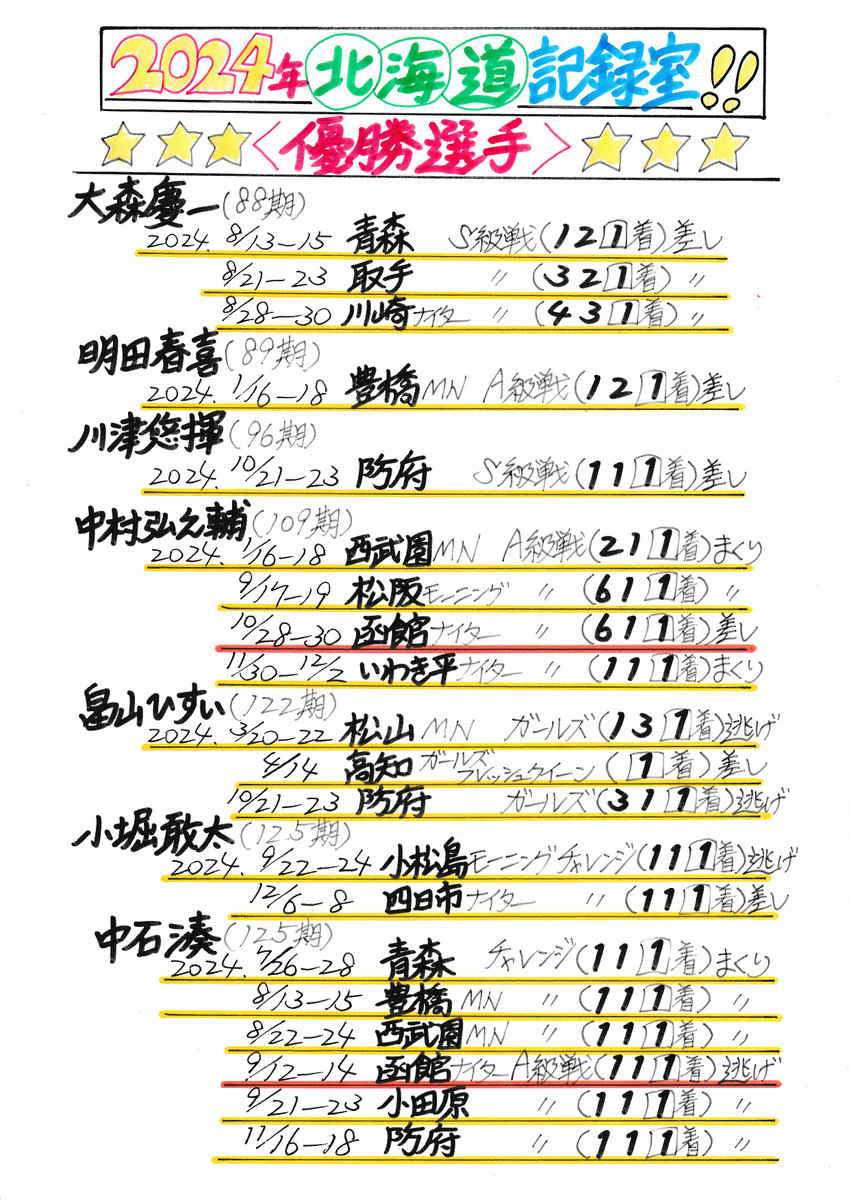 2024年北海道記録室!!
<優勝選手>
大森慶一(88期)
2024. 8/13-15 青森 S級戦(1 2 1着)差し
8/21-23 取手 〃 (3 2 1着) 〃
8/28-30 川崎ナイター 〃 (4 3 1着) 〃
明田春喜(89期)
2024. 1/16-18 豊橋MN A級戦(1 2 1着)差し
川津悠揮(96期)
2024. 10/21-23 防府 S級戦(1 1 1着)差し
中村弘之輔(109期)
2024. 1/16-18 西武園MN A級戦(2 1 1着)まくり
9/17-19 松阪モーニング 〃 (6 1 1着) 〃
10/28-30 函館ナイター 〃 (6 1 1着)差し
11/30-12/2 いわき平ナイター 〃 (1 1 1着)まくり
畠山ひすい(122期)
2024. 3/20-22 松山MN ガールズ(1 3 1着)逃げ
4/14 高知ガールズフレッシュクイーン(1着)差し
10/21-23 防府 ガールズ(3 1 1着)逃げ
小堀敢太(125期)
2024. 9/22-24 小松島モーニングチャレンジ(1 1 1着)逃げ
12/6-8 四日市ナイター 〃 (1 1 1着)差し
中石湊(125期)
2024. 7/26-28 青森 チャレンジ(1 1 1着)まくり
8/13-15 豊橋MN 〃 (1 1 1着) 〃
8/22-24 西武園MN 〃 (1 1 1着) 〃
9/12-14 函館ナイターA級戦(1 1 1着)逃げ
9/21-23 小田原 〃 (1 1 1着) 〃
11/16-18 防府 〃 (1 1 1着) 〃